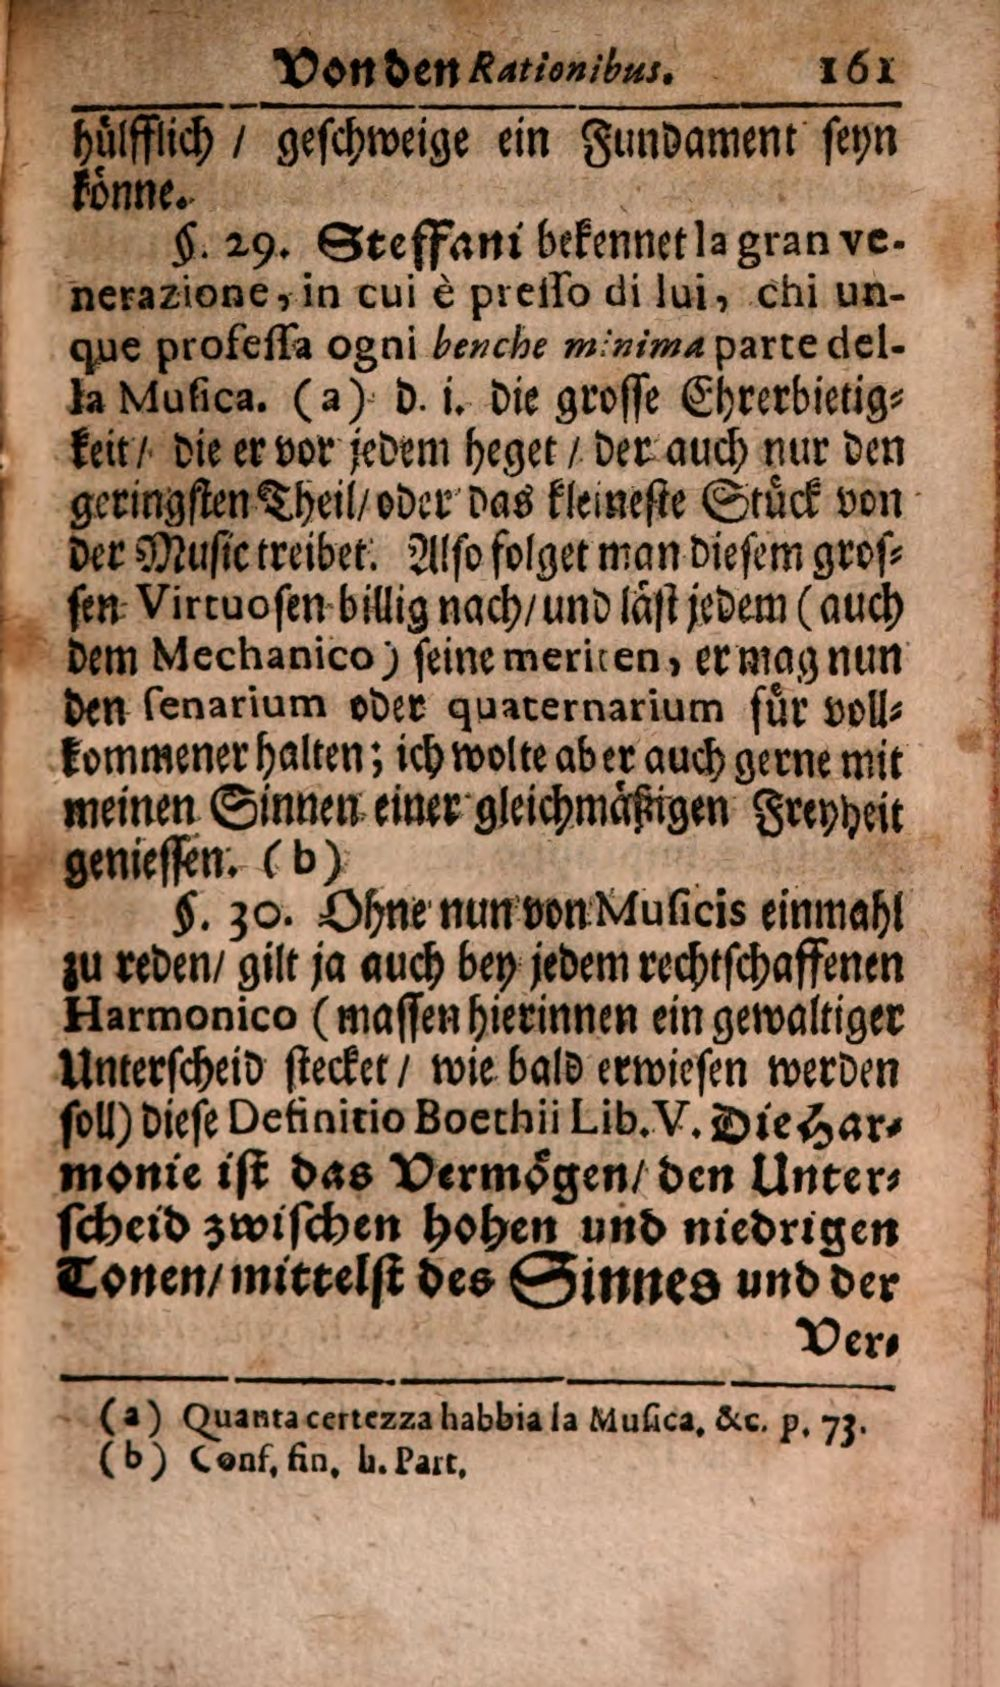 Von den Rationibus. 161
hülfflich / geschweige ein Fundament seyn
könne.
§. 29. Steffani bekennet la gran ve-
nerazione, in cui è presso di lui, chi un-
que professa ogni benche minima parte del-
la Musica. (a) d. i. die grosse Ehrerbietig-
keit / die er vor jedem heget / der auch nur den
geringsten Theil / oder das kleineste Stück von
der Music treibet. Also folget man diesem gros-
sen Virtuosen billig nach / und läst jedem (auch
dem Mechanico) seine meriten, er mag nun
den senarium oder quaternarium für voll-
kommener halten; ich wolte aber auch gerne mit
meinen Sinnen einer gleichmäßigen Freyheit
geniessen. (b)
§. 30. Ohne nun von Musicis einmahl
zu reden / gilt ja auch bey jedem rechtschaffenen
Harmonico (massen hierinnen ein gewaltiger
Unterscheid stecket / wie bald erwiesen werden
soll) diese Definitio Boethii Lib. V. Die Har-
monie ist das Vermögen / den Unter-
scheid zwischen hohen und niedrigen
Tonen / mittelst des Sinnes und der
Ver-
(a) Quanta certezza habbia la Musica, &c. p. 73.
(b) Conf. fin. h. Part.